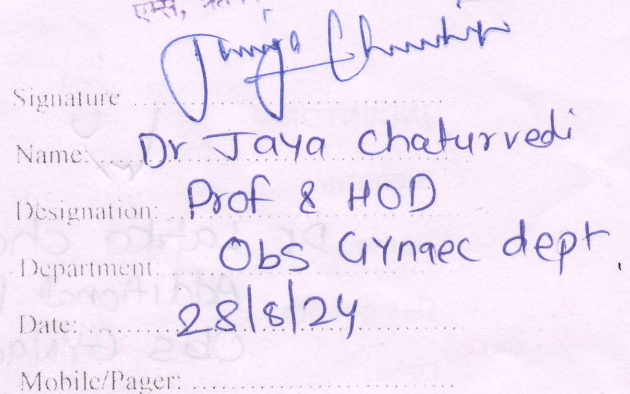 एम्स,
Signature
Name: Dr Jaya Chaturvedi
Designation: Prof & HOD
Department: Obs Gynaec dept
Date: 28/8/24
Mobile/Pager: